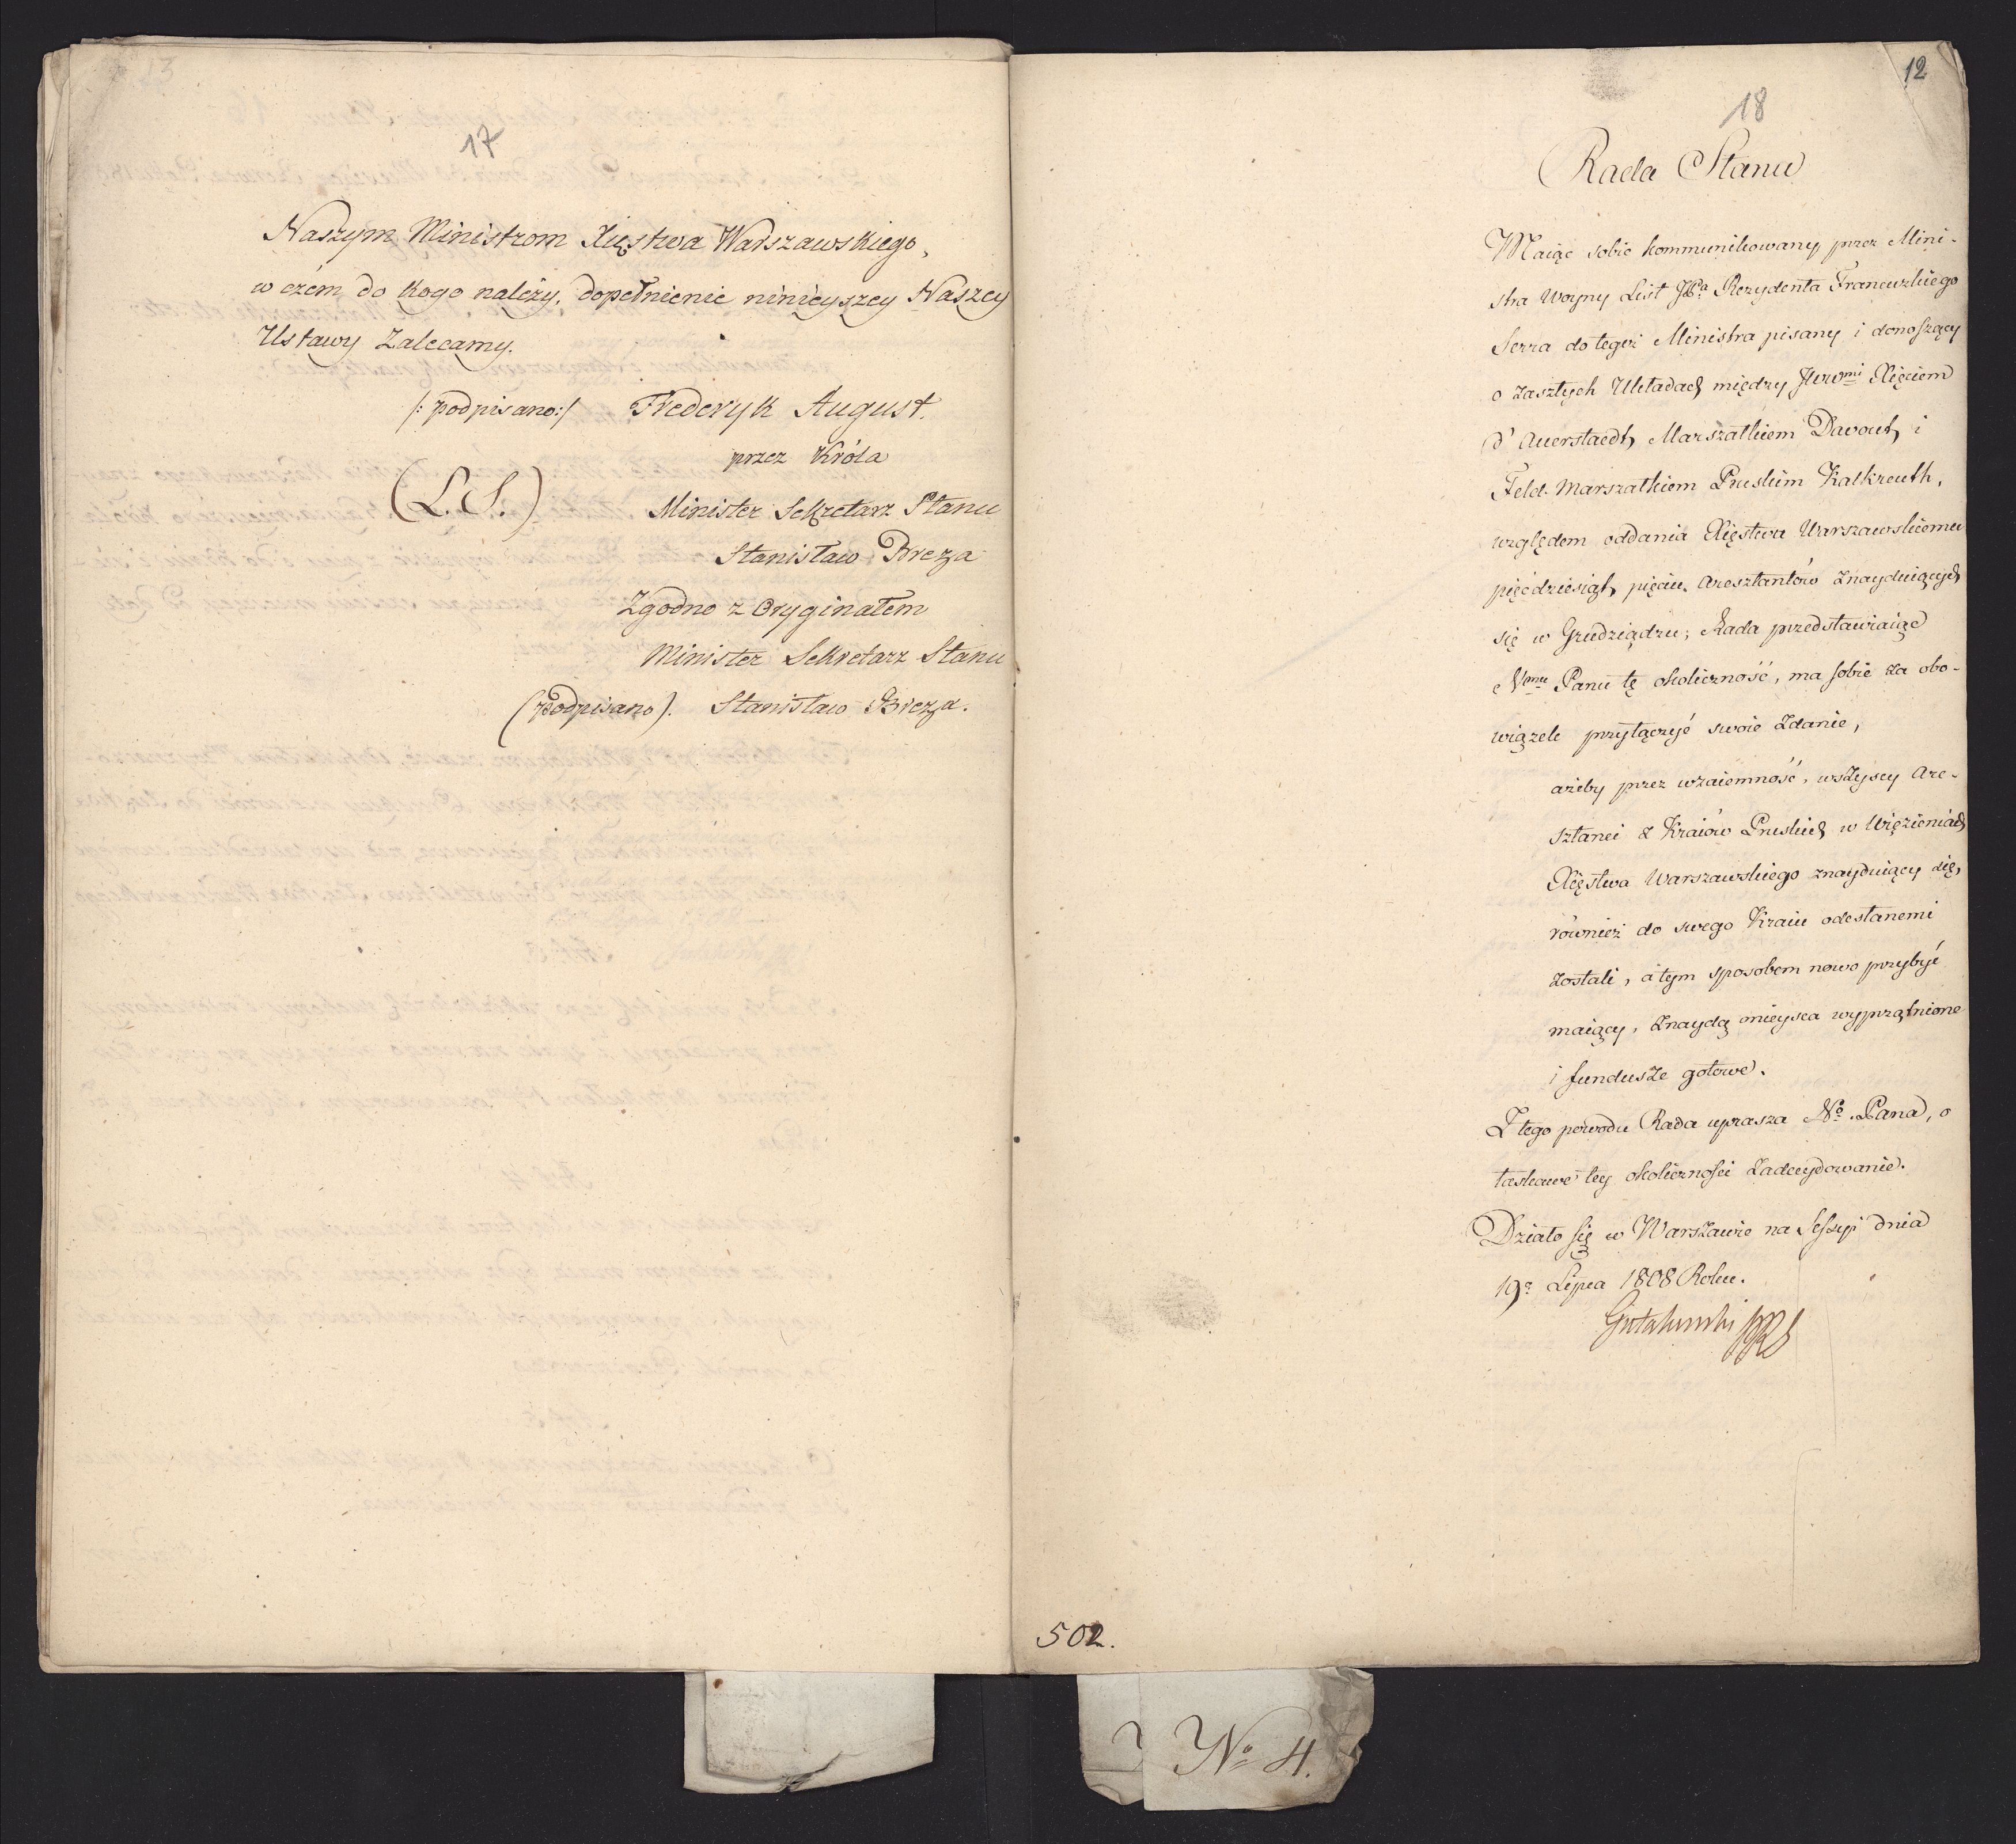 17
Naszym Ministrom Xięstwa Warszawskiego,
w czém do kogo należy, dopełnienie ninieyszey Naszey
Ustawy Zalecamy.
/: podpisano:/ Frederyk August.
przez Króla
(L. S.)
Minister Sekretarz Stanu
Stanisław Breza
Zgodno z Oryginałem
Minister Sekretarz Stanu
(podpisano). Stanisław Breza.
12
18
Rada Stanu
Maiąc sobie kommunikowany przez Mini-
stra Woyny List Rezydenta Francuzkiego
Serra do tegoż Ministra pisany i donoszący
o zaszłych Układach między JWWmi Xięciem
d'Auerstaedt, Marszałkiem Davout, i
Feld-Marszałkiem Pruskim Kalkreuth,
względem oddania Xięstwu Warszawskiemu
pięćdziesiąt, pięciu Aresztantów znayduiących
się w Grudziądzu; Rada przedstawiaiąc
Nmu Panu tę okoliczność, ma sobie za obo-
wiązek przyłączyć swoie Zdanie,
ażeby przez wzaiemność, wszyscy Are-
sztanci z Kraiów Pruskich w Więzieniach
Xięstwa Warszawskiego znayduiący się,
również do swego Kraiu odesłanemi
zostali, a tym sposobem nowo przybyć
maiący, znaydą mieysca wyprzątnione
i fundusze gotowe.
Z tego powodu Rada uprasza No Pana, o
łaskawe tey okoliczności zadecydowanie.
Działo się w Warszawie na Sessyi dnia
19o Lipca 1808 Roku.
Gutakowski PRS
502.
No 4.